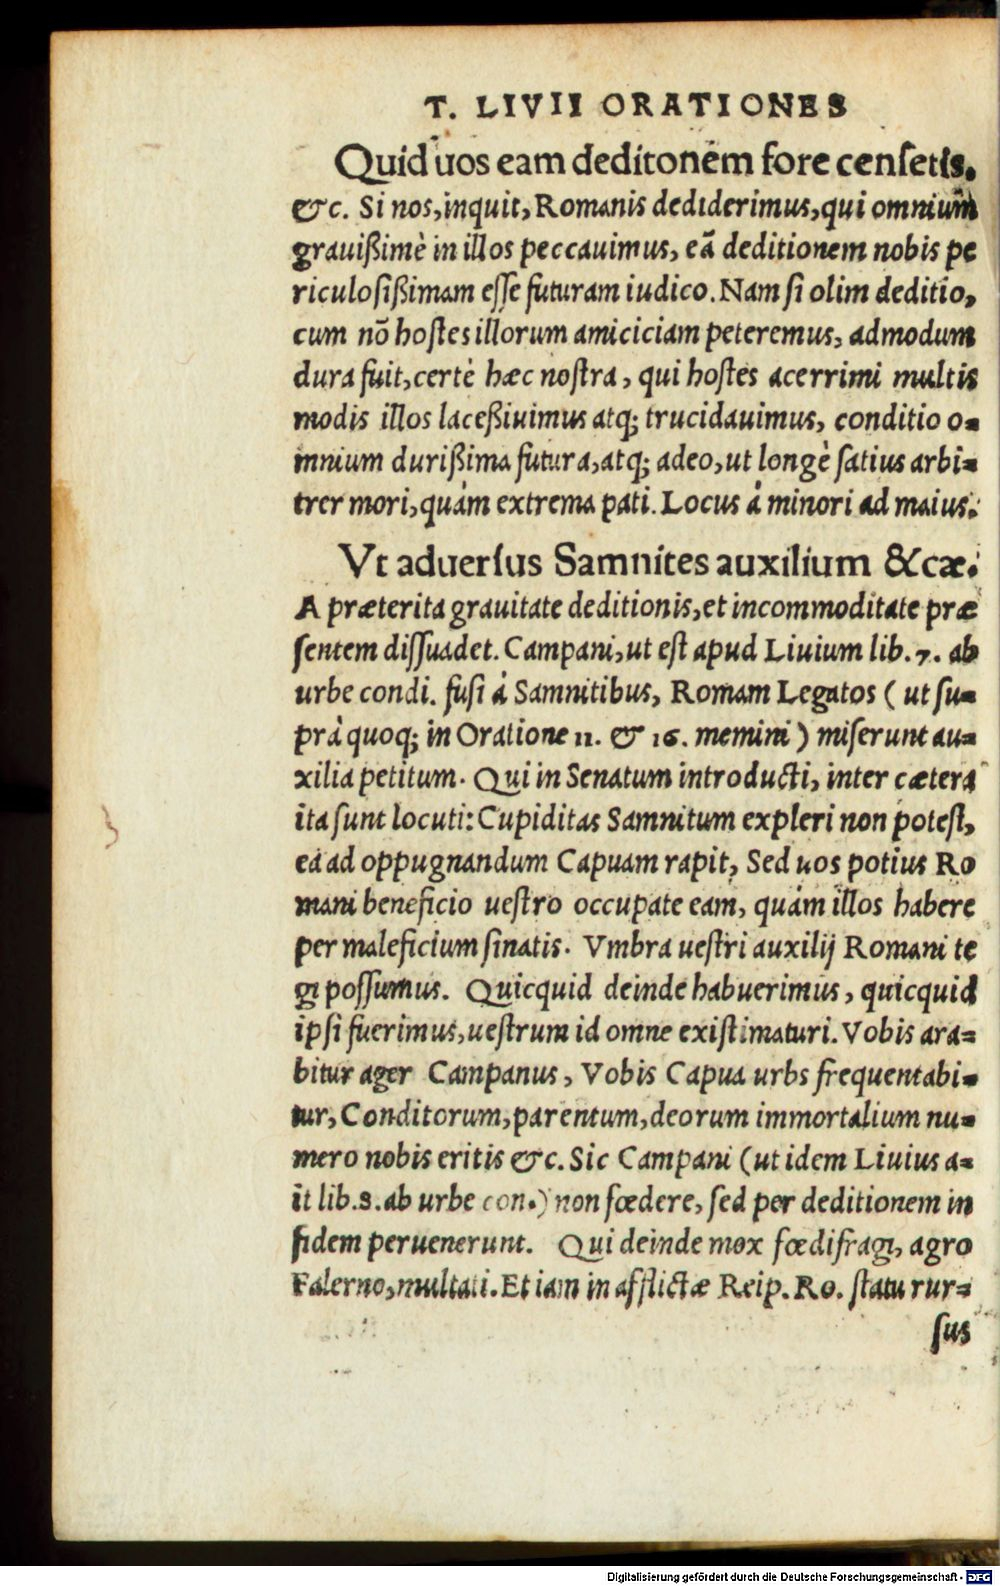 T. LIVII ORATIONES
Quid uos eam deditonem fore censetis.
&c. Si nos, inquit, Romanis dediderimus, qui omnium
grauißimè in illos peccauimus, eã deditionem nobis pe
riculosißimam esse futuram iudico. Nam si olim deditio,
cum nõ hostes illorum amiciciam peteremus, admodum
dura fuit, certè hæc nostra, qui hostes acerrimi multis
modis illos laceßiuimus atq; trucidauimus, conditio o-
mnium durißima futura, atq; adeo, ut longè satius arbi-
trer mori, quàm extrema pati. Locus à minori ad maius.
Vt aduersus Samnites auxilium &cæ.
A præterita grauitate deditionis, et incommoditate præ
sentem dissuadet. Campani, ut est apud Liuium lib. 7. ab
urbe condi. fusi à Samnitibus, Romam Legatos ( ut su-
prà quoq; in Oratione 11. & 16. memini ) miserunt au-
xilia petitum. Qui in Senatum introducti, inter cætera
ita sunt locuti: Cupiditas Samnitum expleri non potest,
ea ad oppugnandum Capuam rapit, Sed uos potius Ro
mani beneficio uestro occupate eam, quàm illos habere
per maleficium sinatis. Vmbra uestri auxilij Romani te
gi possumus. Quicquid deinde habuerimus, quicquid
ipsi fuerimus, uestrum id omne existimaturi. Vobis ara-
bitur ager Campanus, Vobis Capua urbs frequentabi-
tur, Conditorum, parentum, deorum immortalium nu-
mero nobis eritis &c. Sic Campani (ut idem Liuius a-
it lib. 8. ab urbe con.) non fœdere, sed per deditionem in
fidem peruenerunt. Qui deinde mox fœdifragi, agro
Falerno, multati. Et iam in afflictæ Reip. Ro. statu rur-
sus
Digitalisierung gefördert durch die Deutsche Forschungsgemeinschaft - DFG